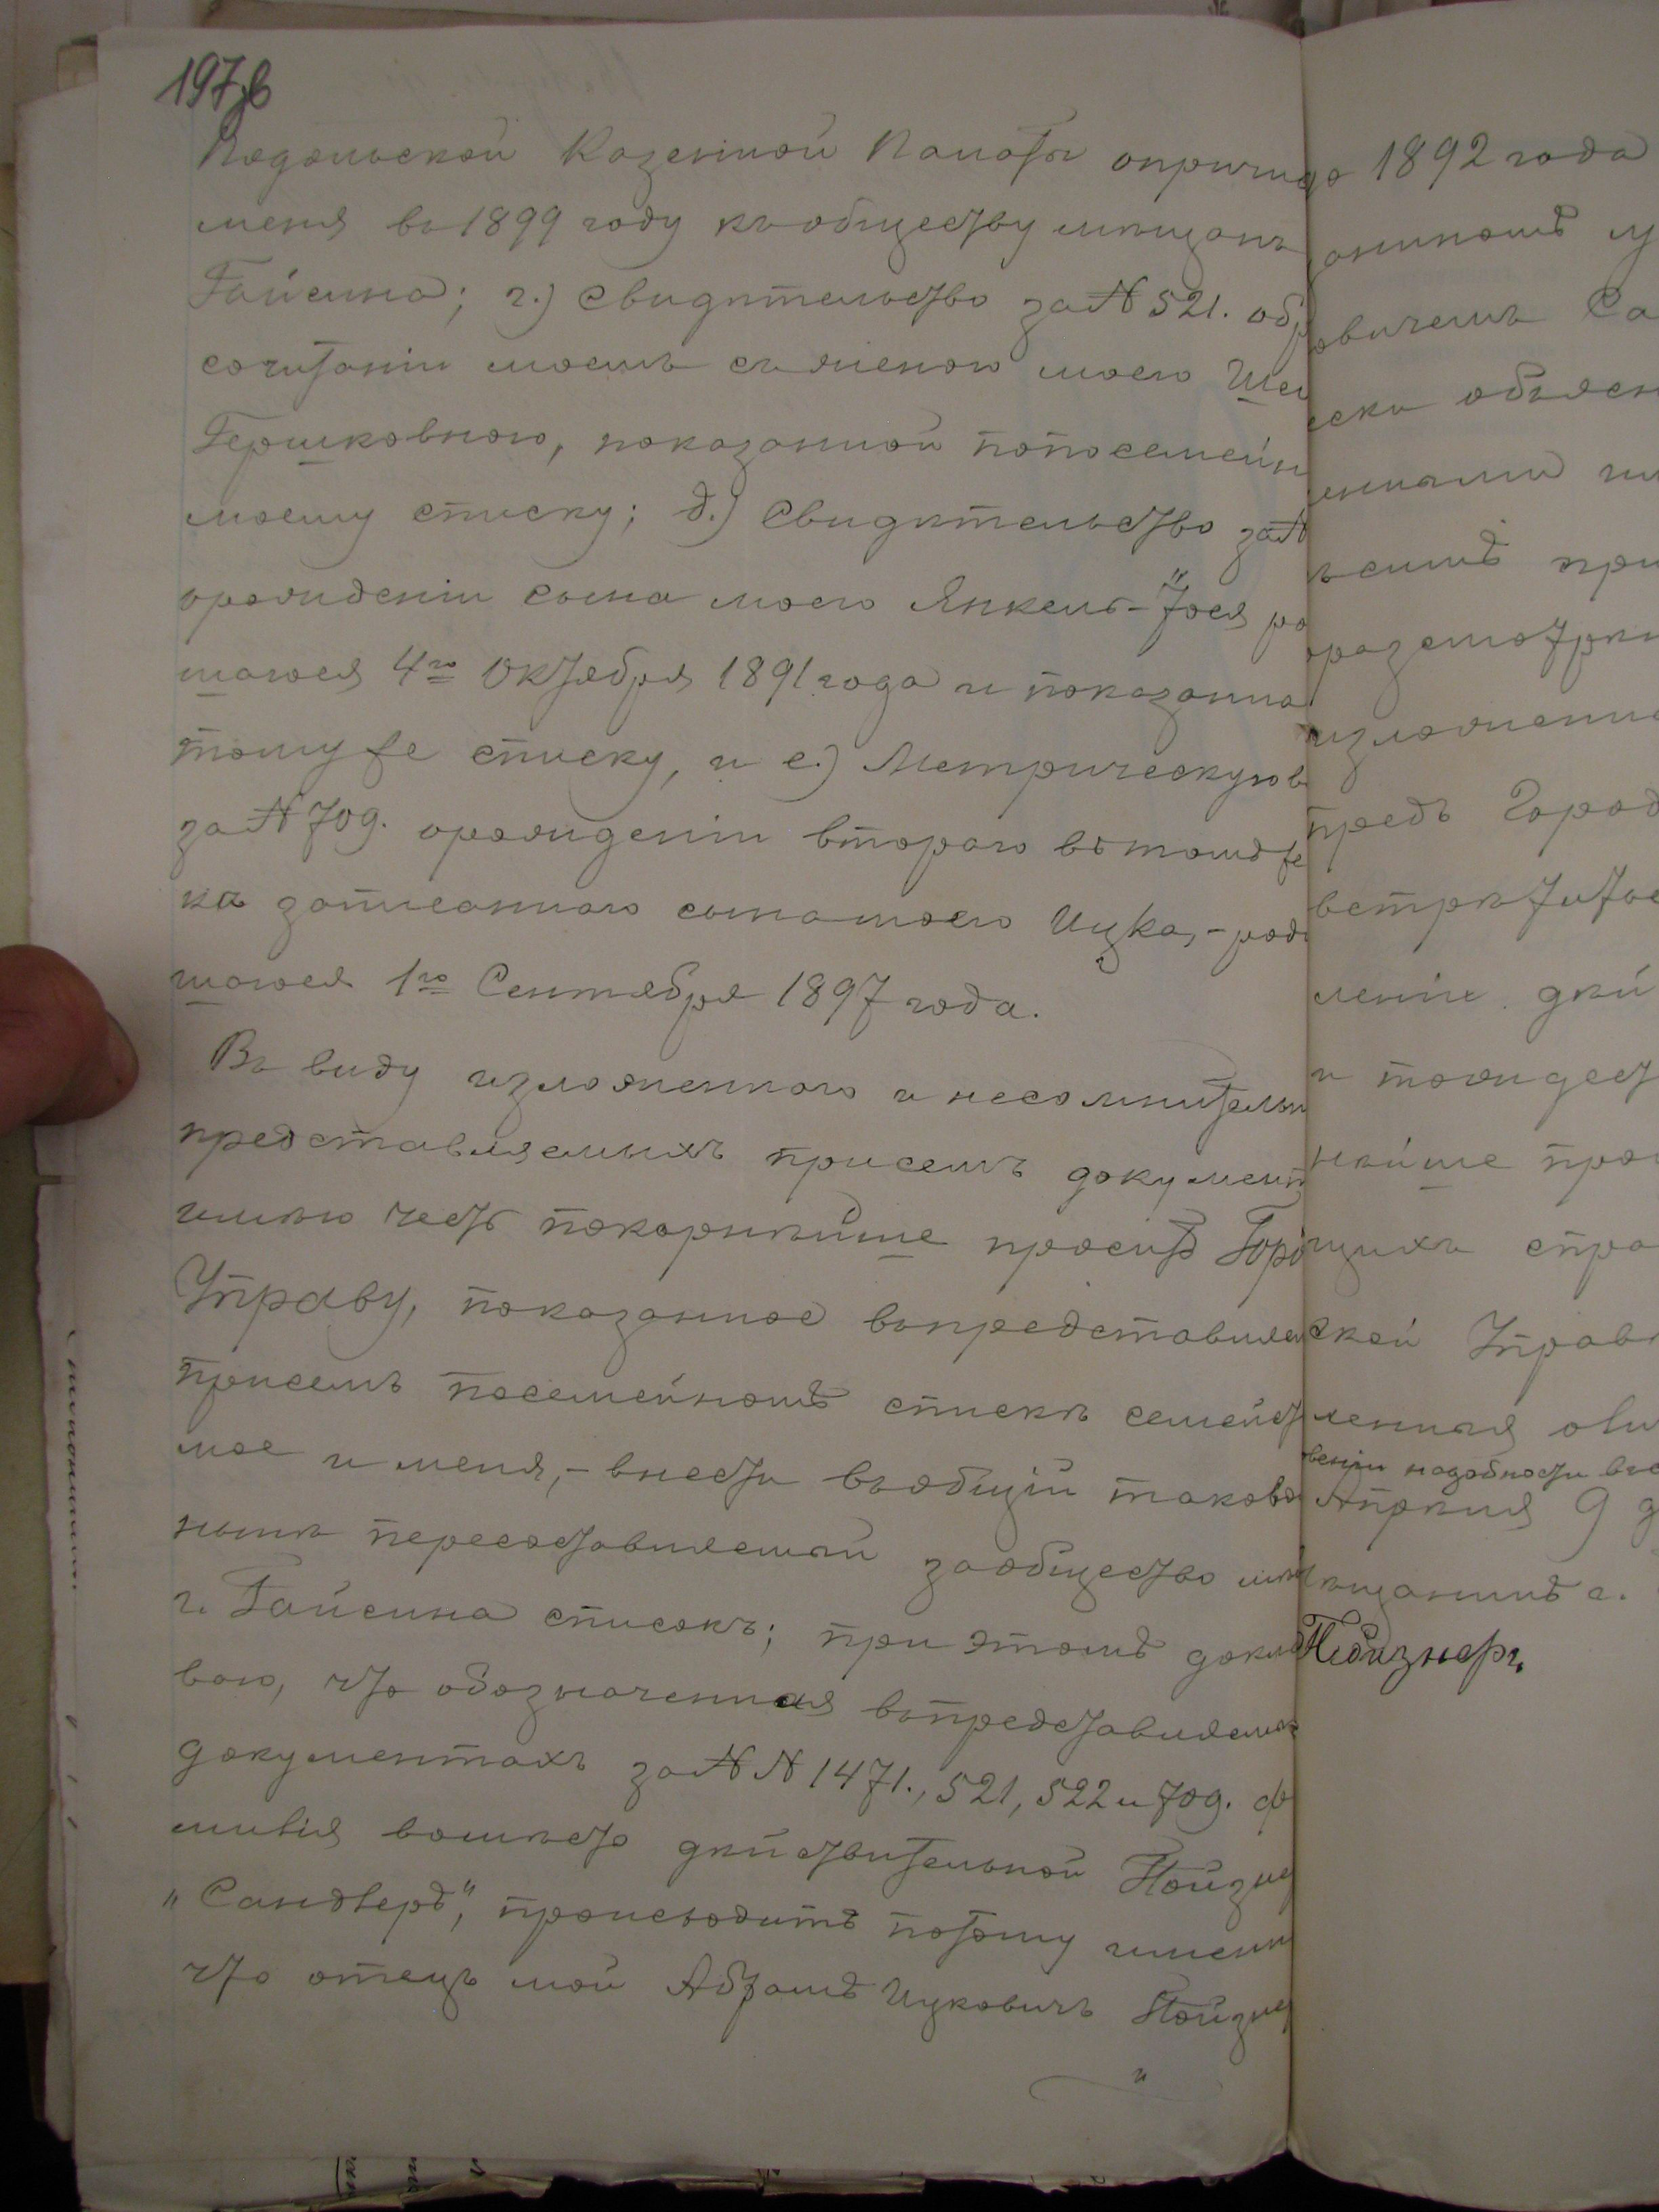 197 в
Подольской Казенной Палаты опричи
меня въ 1899 году къ обществу мѣщанъ
Гайсина; г.) Свидѣтельство за № 521. обр
сочитаніи моемъ съ женою моею Шей
Гершковною, показанной по посемейн
моему списку; д.) Свидѣтельство за №
о рожденіи сына моего Янкель-Іося ро
шагося 4го Октября 1891 года и показанна
тому же списку, и е.) Метрическую в
за № 709. о рожденіи втораго въ томъ же
ка записаннаго сына моего Ицка,- роди
шагося 1го Сентября 1897 года.
Въ виду изложеннаго и несомнительн
представляемыхъ при семъ документ
имѣю честь покорнѣйше просить Горо
Управу, показанное въ представляем
при семъ посемейномъ спискѣ семейст
мое и меня,- внести въ общій таково
нынѣ пересоставляемый за общество мѣщ
г. Гайсина списокъ; при этомъ докла
ваю, что обозначенная въ представляемы
документахъ за №№ 1471., 521, 522 и 709. фа
милія вмѣсто дѣйствительной Пойзне
"Сандлеръ", происходитъ потому именн
что отецъ мой Абрамъ Ицковичъ Пойзне
и
до 1892 года
овичемъ Са
объясн
при
разсмотрѣн
изложенн
предъ Город
встрѣтитъс
леніи дѣй
и тождест
нѣйше про
щихъ спра
ской Управ
ленная
веніи надобности въ
Апрѣля 9 д
мѣщанинъ г.
Пойзнеръ